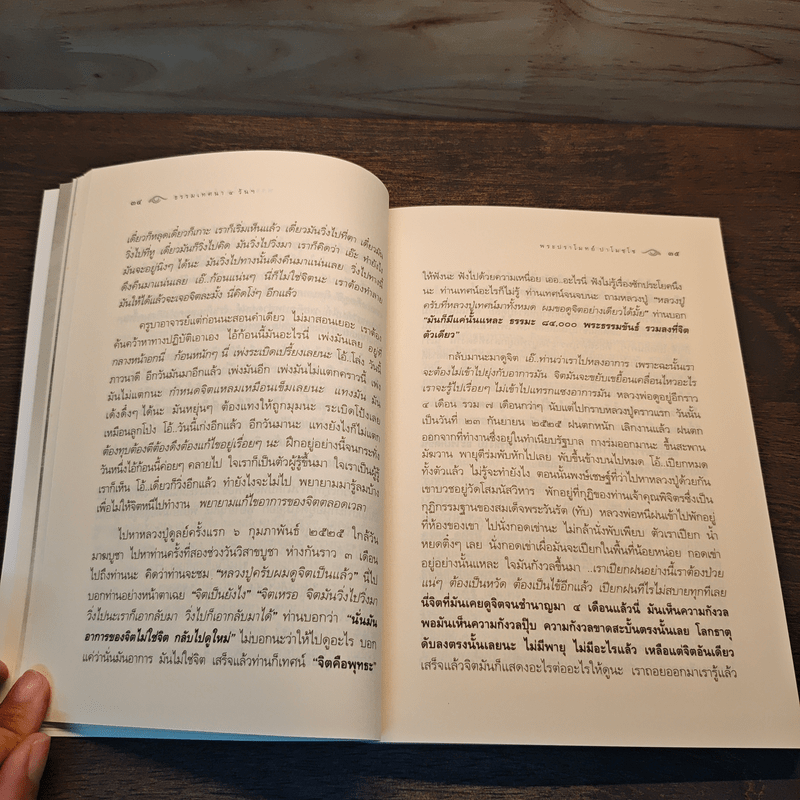 ๓๔ ธรรมเทศนา ๙ วันฯ
เดี๋ยวก็หลุดเดี๋ยวก็เกาะ เราก็เริ่มเห็นแล้ว เดี๋ยวมันวิ่งไปที่ตา เดี๋ยวมัน
วิ่งไปที่หู เดี๋ยวมันก็วิ่งไปคิด มันวิ่งไปวิ่งมา เราก็คิดว่า เอ๊ะ ทำยังไง
มันจะอยู่นิ่งๆ ได้นะ มันวิ่งไปทางนั้นดึงคืนมาแน่นเลย วิ่งไปทางนี้
ดึงคืนมาแน่นเลย เอ๊..ก้อนแน่นๆ นี่ก็ไม่ใช่จิตนะ เราต้องทำลาย
มันให้ได้แล้วจะเจอจิตละมั้ง นี่คิดโง่ๆ อีกแล้ว
ครูบาอาจารย์แต่ก่อนนะสอนคำเดียว ไม่มาสอนเยอะ เราต้อง
ค้นคว้าหาทางปฏิบัติเอาเอง ไอ้ก้อนนี้มันอะไรนี่ เพ่งมันเลย อยู่ตรง
กลางหน้าอกนี่ ก้อนหนักๆ นี่ เพ่งระเบิดเปรี้ยงเลยนะ โอ้..โล่ง วันนี้
ภาวนาดี อีกวันมันมาอีกแล้ว เพ่งมันอีก เพ่งมันไม่แตกคราวนี้ เพ่ง
มันไม่แตกนะ กำหนดจิตแหลมเหมือนเข็มเลยนะ แทงมัน มัน
เด้งดึ๋งๆ ได้นะ มันหยุ่นๆ ต้องแทงให้ถูกมุมนะ ระเบิดโป้งเลย
เหมือนลูกโป่ง โอ้..วันนี้เก่งอีกแล้ว อีกวันมานะ แทงยังไงก็ไม่แตก
ต้องทุบต้องตีต้องดึงต้องแก้ไขอยู่เรื่อยๆ นะ ฝึกอยู่อย่างนี้จนกระทั่ง
วันหนึ่งไอ้ก้อนนี้ค่อยๆ คลายไป ใจเราก็เป็นตัวผู้รู้ขึ้นมา ใจเราเป็นผู้รู้
เราก็เห็น โอ้..เดี๋ยวก็วิ่งอีกแล้ว ทำยังไงจะไม่ไป พยายามมารู้ลมบ้าง
เพื่อไม่ให้จิตหนีไปทำงาน พยายามแก้ไขอาการของจิตตลอดเวลา
ไปหาหลวงปู่ดูลย์ครั้งแรก ๖ กุมภาพันธ์ ๒๕๒๕ ใกล้วัน
มาฆบูชา ไปหาท่านครั้งที่สองช่วงวันวิสาขบูชา ห่างกันราว ๓ เดือน
ไปถึงท่านนะ คิดว่าท่านจะชม “หลวงปู่ครับผมดูจิตเป็นแล้ว” นี่ไป
บอกท่านอย่างหน้าตาเฉย “จิตเป็นยังไง” “จิตเหรอ จิตมันวิ่งไปวิ่งมา
วิ่งไปนะเราก็เอากลับมา วิ่งไปก็เอากลับมาได้” ท่านบอกว่า “นั่นมัน
อาการของจิตไม่ใช่จิต กลับไปดูใหม่” ไม่บอกนะว่าให้ไปดูอะไร บอก
แค่ว่านั่นมันอาการ มันไม่ใช่จิต เสร็จแล้วท่านก็เทศน์ “จิตคือพุทธะ”
พระปราโมทย์ ปาโมชฺโช ๓๕
ให้ฟังนะ ฟังไปด้วยความเหนื่อย เออ..อะไรนี่ ฟังไม่รู้เรื่องซักประโยคนึง
นะ ท่านเทศน์อะไรก็ไม่รู้ ท่านเทศน์จนจบนะ ถามหลวงปู่ “หลวงปู่
ครับที่หลวงปู่เทศน์มาทั้งหมด ผมขอดูจิตอย่างเดียวได้มั้ย” ท่านบอก
“มันก็มีแค่นั้นแหละ ธรรมะ ๘๔,๐๐๐ พระธรรมขันธ์ รวมลงที่จิต
ตัวเดียว”
กลับมานะมาดูจิต เอ๊..ท่านว่าเราไปหลงอาการ เพราะฉะนั้นเรา
จะต้องไม่เข้าไปยุ่งกับอาการมัน จิตมันจะขยับเขยื้อนเคลื่อนไหวอะไร
เราจะรู้ไปเรื่อยๆ ไม่เข้าไปแทรกแซงอาการมัน หลวงพ่อดูอยู่อีกราว
๔ เดือน รวม ๗ เดือนกว่าๆ นับแต่ไปกราบหลวงปู่คราวแรก วันนั้น
เป็นวันที่ ๒๓ กันยายน ๒๕๒๕ ฝนตกหนัก เลิกงานแล้ว ฝนตก
ออกจากที่ทำงานซึ่งอยู่ในทำเนียบรัฐบาล กางร่มออกมานะ ขึ้นสะพาน
มัฆวาน พายุตีร่มพับหักไปเลย พับขึ้นข้างบนไปหมด โอ้..เปียกหมด
ทั้งตัวแล้ว ไม่รู้จะทำยังไง ตอนนั้นพงษ์เชษฐ์ที่ว่าไปหาหลวงปู่ด้วยกัน
เขาบวชอยู่วัดโสมนัสวิหาร พักอยู่ที่กุฏิของท่านเจ้าคุณพิจิตรซึ่งเป็น
กุฏิกรรมฐานของสมเด็จพระวันรัต (ทับ) หลวงพ่อหนีฝนเข้าไปพักอยู่
ที่ห้องของเขา ไปนั่งกอดเข่านะ ไม่กล้านั่งพับเพียบ ตัวเราเปียก น้ำ
หยดติ๋งๆ เลย นั่งกอดเข่าเผื่อมันจะเปียกในพื้นที่น้อยหน่อย กอดเข่า
อยู่อย่างนั้นแหละ ใจมันกังวลขึ้นมา ..เราเปียกฝนอย่างนี้เราต้องป่วย
แน่ๆ ต้องเป็นหวัด ต้องเป็นไข้อีกแล้ว เปียกฝนทีไรไม่สบายทุกทีเลย
นี่จิตที่มันเคยดูจิตจนชำนาญมา ๔ เดือนแล้วนี่ มันเห็นความกังวล
พอมันเห็นความกังวลปุ๊บ ความกังวลขาดสะบั้นตรงนั้นเลย โลกธาตุ
ดับลงตรงนั้นเลยนะ ไม่มีพายุ ไม่มีอะไรแล้ว เหลือแต่จิตอันเดียว
เสร็จแล้วจิตมันก็แสดงอะไรต่ออะไรให้ดูนะ เราถอยออกมาเรารู้แล้ว